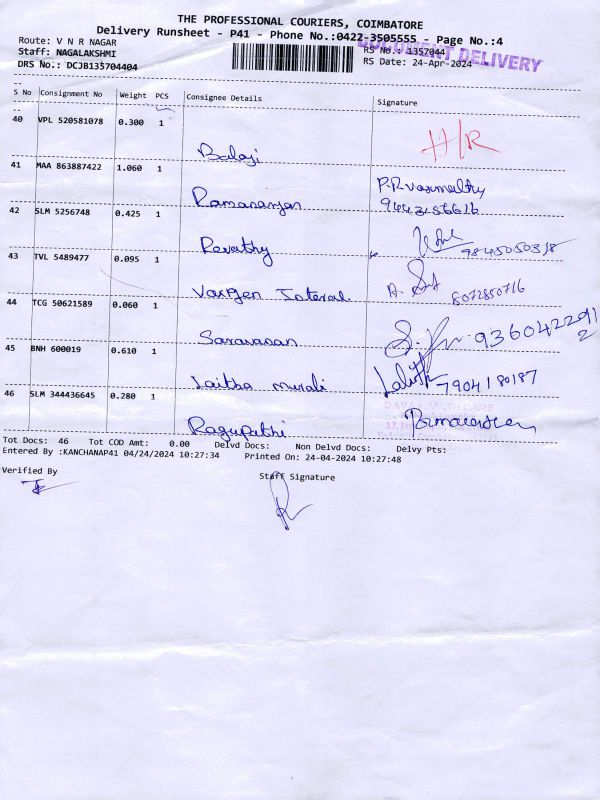 THE PROFESSIONAL COURIERS, COIMBATORE
Delivery Runsheet - P41 - Phone No.:0422-3505555 - Page No.:4
DOCUMENT DELIVERY
Route: V N R NAGAR RS No.: 1357044
Staff: NAGALAKSHMI RS Date: 24-Apr-2024
DRS No.: DCJB135704404
S No Consignment No Weight PCS Consignee Details Signature
40 VPL 520581078 0.300 1 Balaji H/R
41 MAA 863887422 1.060 1 Ramananjan P.R Vasumathy
42 SLM 5256748 0.425 1 Revathy 9845050318
43 TVL 5489477 0.095 1 8072850716
44 TCG 50621589 0.060 1 Saravanan 93604229112
45 BNH 600019 0.610 1 murali Lalith 7904180187
46 SLM 344436645 0.280 1 Ragupathi
Tot Docs: 46 Tot COD Amt: 0.00 Delvd Docs: Non Delvd Docs: Delvy Pts:
Entered By :KANCHANAP41 04/24/2024 10:27:34 Printed On: 24-04-2024 10:27:48
Verified By Staff Signature